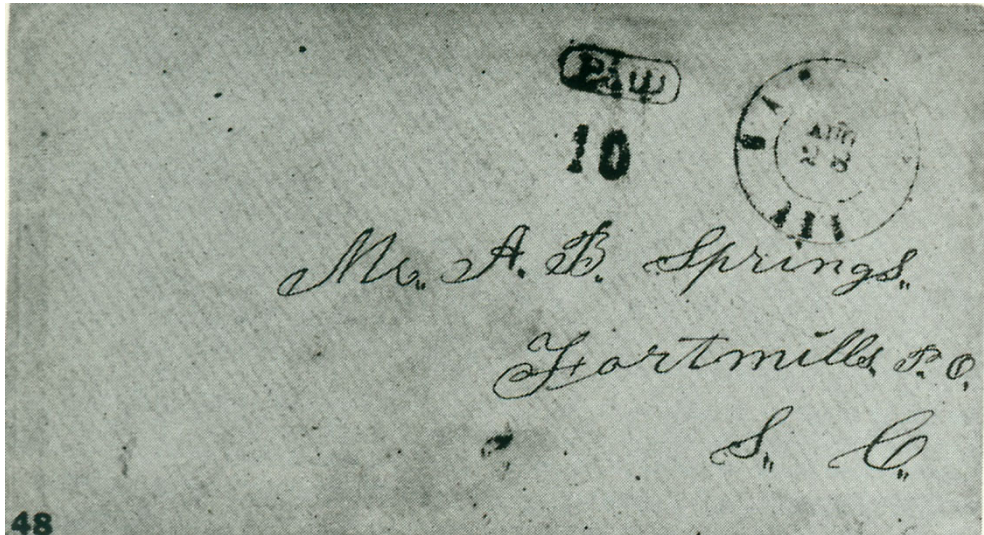 PAID
10
AUG
28
Mr. A. B. Springs.
Fortmills, P. O.
S. C.
48